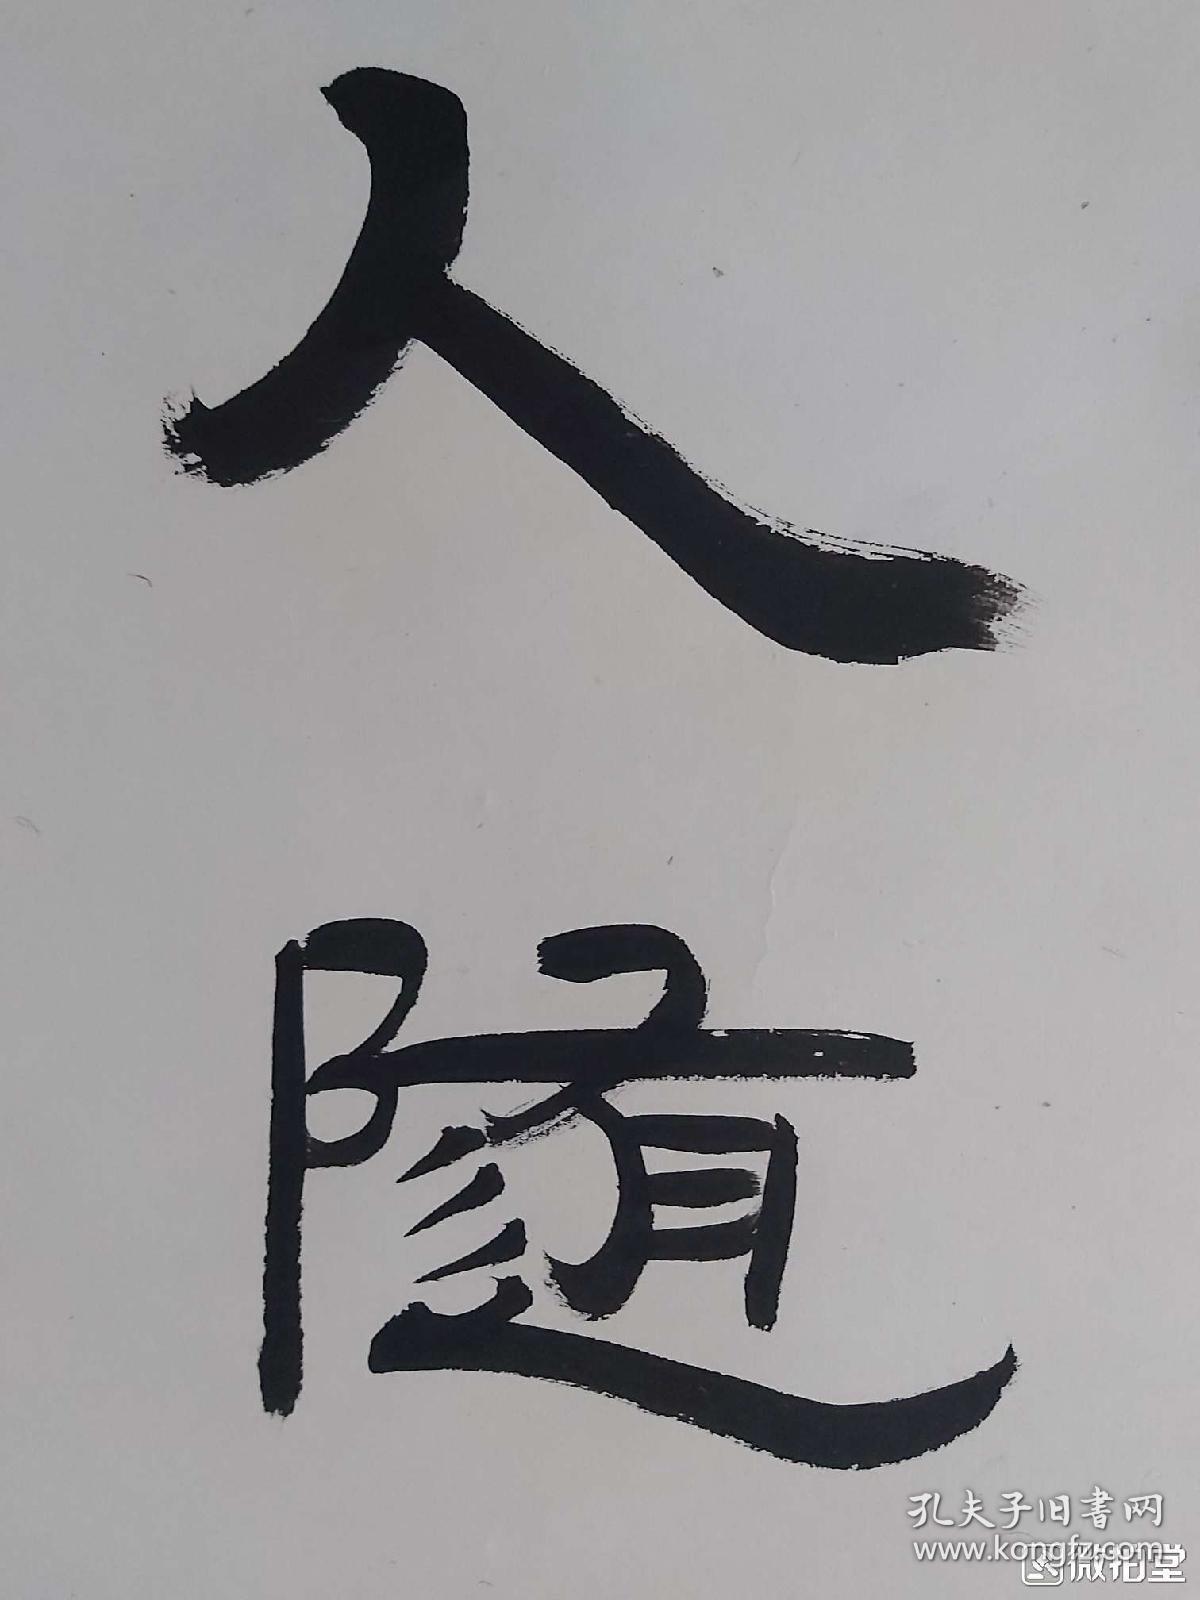 人
随
孔夫子旧书网
www.kongfz.com
微拍堂